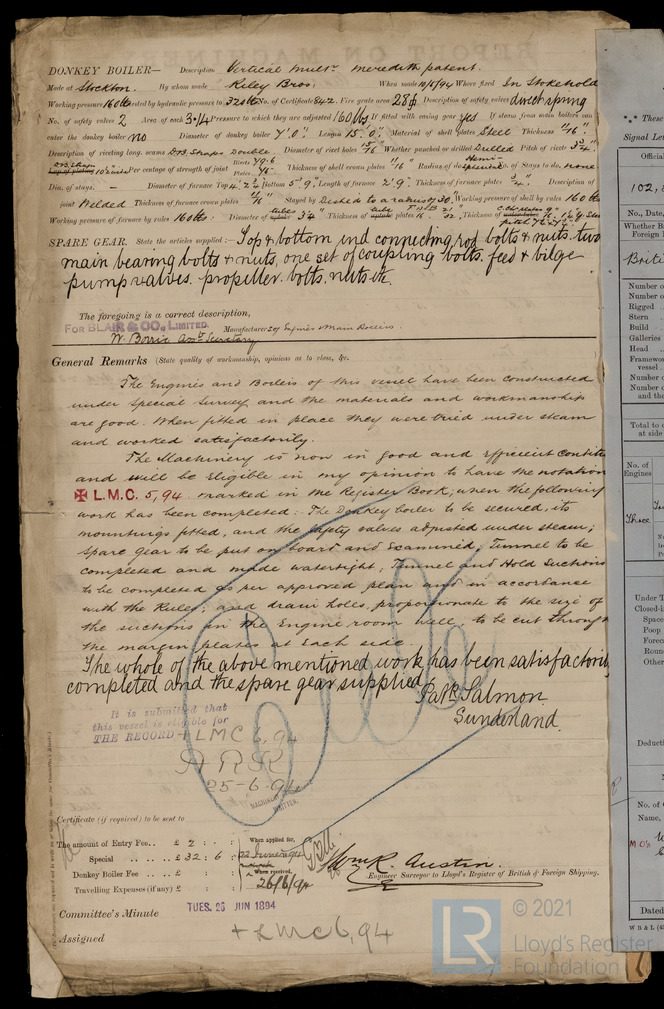 DONKEY BOILER— Description Vertical Mult. Meredith patent.
Made at Stockton. By whom made Riley Bros. When made 10/5/94 Where fixed In Stokehold
Working pressure 160 lbs tested by hydraulic pressure to 320 lbs No. of Certificate 842. Fire grate area 28 ⌀ Description of safety valves direct spring
No. of safety valves 2 Area of each 3·14 Pressure to which they are adjusted 160 lbs If fitted with easing gear yes If steam from main boilers can
enter the donkey boiler no Diameter of donkey boiler 7'. 0". Length 15'. 0". Material of shell plates Steel Thickness 11/16".
Description of riveting long. seams D.B. Straps Double. Diameter of rivet holes 15/16 Whether punched or drilled Drilled Pitch of rivets
Per centage of strength of joint Rivets 79.6 Plates Thickness of shell crown plates 11/16" Radius of do. Hemispherical No. of Stays to do. none.
Dia. of stays. — Diameter of furnace Top 4'. 2" Bottom 5'. 9" Length of furnace 2'. 9". Thickness of furnace plates 3/4". Description of
joint Welded Thickness of furnace crown plates Stayed by Dished to a radius of 30" Working pressure of shell by rules 160 lbs
Working pressure of furnace by rules 160 lbs: Diameter of tubes 3/4 Thickness of
SPARE GEAR. State the articles supplied:— Top & bottom end connecting rod bolts & nuts. two
main bearing bolts & nuts, one set of coupling bolts. feed & bilge
pump valves. propeller. bolts. nuts etc.
The foregoing is a correct description,
FOR BLAIR & CO., LIMITED. Manufacturers of Engines & Main Boilers.
W. Borrie Asst. Secretary
General Remarks (State quality of workmanship, opinions as to class, &c.
The Engines and Boilers of this vessel have been constructed
under Special Survey and the materials and workmanship
are good. When fitted in place they were tried under steam
and worked satisfactorily.
The Machinery is now in good and efficient
and will be eligible in my opinion to have the notation
✠ L.M.C. 5,94 marked in the Register Book, when the following
work has been completed: The Donkey boiler to be secured, its
mountings fitted, and the safety valves adjusted under steam;
spare gear to be put on board and examined; Tunnel to be
completed and made watertight; Tunnel and Hold Suctions
to be completed as per approved plan and in accordance
with the Rules; and drain holes, proportionate to the size of
the suctions in the Engine room well, to be cut through
the margin plates at each side.
The whole of the above mentioned work has been satisfactorily
completed and the spare gear supplied.
Patk Salmon.
Sunderland.
It is submitted that
this vessel is eligible for
THE RECORD + LMC 6,94
25-6-94
MACHINERY
WRITTEN.
Certificate (if required) to be sent to
The amount of Entry Fee.. £ 2 : : When applied for,
Special .. .. .. £ 32 : 6 : 22 June 1894
Donkey Boiler Fee .. £ : : When received,
Travelling Expenses (if any) £ : : 26/6/94
Wm R. Austin.
Engineer Surveyor to Lloyd's Register of British & Foreign Shipping.
Committee's Minute TUES. 26 JUN 1894
Assigned + LMC 6,94
These
Signal Le
Official
102,
No., Date,
Whether B
Foreign
Briti
Number of
Number of
Rigged
Stern
Build
Galleries
Head
Framewo
vessel
Number o
Number o
and the
Total to
at side
No. of
Engines
Three
Under T
Closed-i
Space
Poop
Forec
Roun
Other
Deducti
No. of
Name,
M.O's
Dated
W B & L
LR © 2021
Lloyd's Register
Foundation